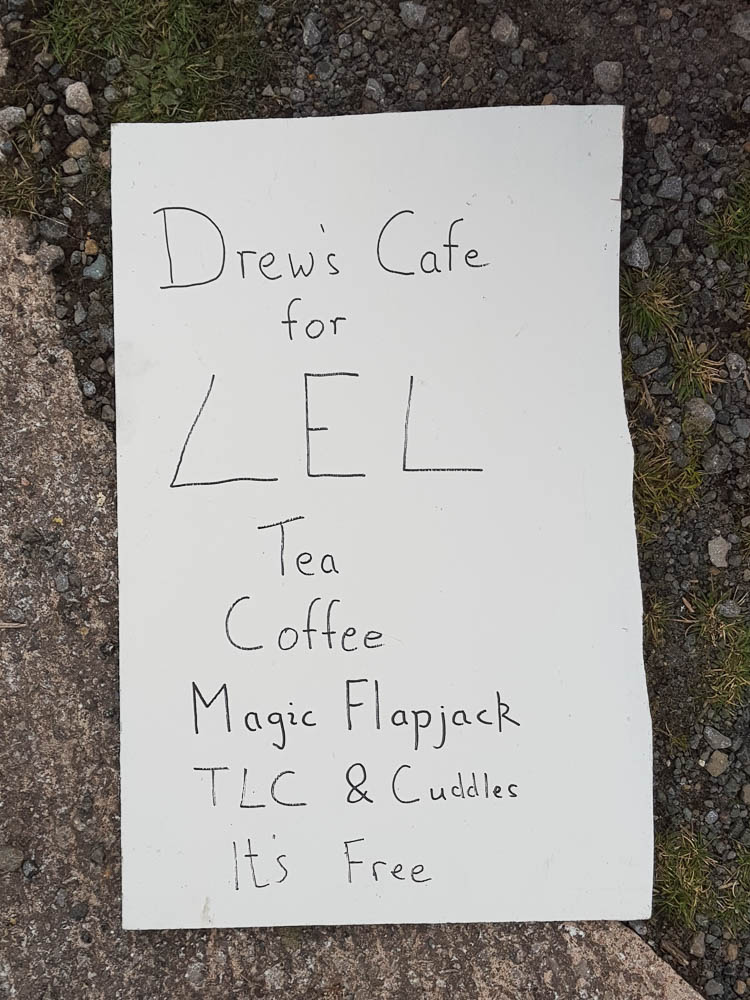 Drew's Cafe
for
LEL
Tea
Coffee
Magic Flapjack
TLC & Cuddles
It's Free